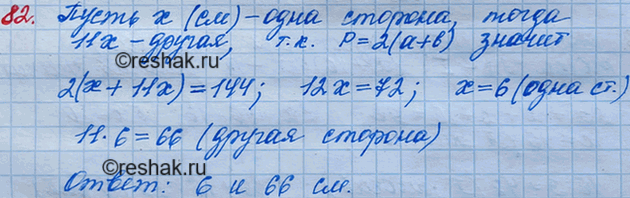 82. Пусть x (см) - одна сторона, тогда
11x - другая, т.к. P=2(a+b) значит
2(x + 11x) = 144; 12x = 72; x = 6 (одна ст.)
11·6 = 66 (другая сторона)
©reshak.ru
©reshak.ru
Ответ: 6 и 66 см.